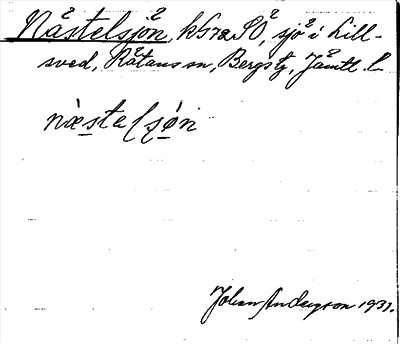 Nästelsjön, k5 ra SO, sjö i Lill-
sved, Rätans sn, Bergs tg, Jämtl. l.
næstelsjøn
Johan Anderson 1931.